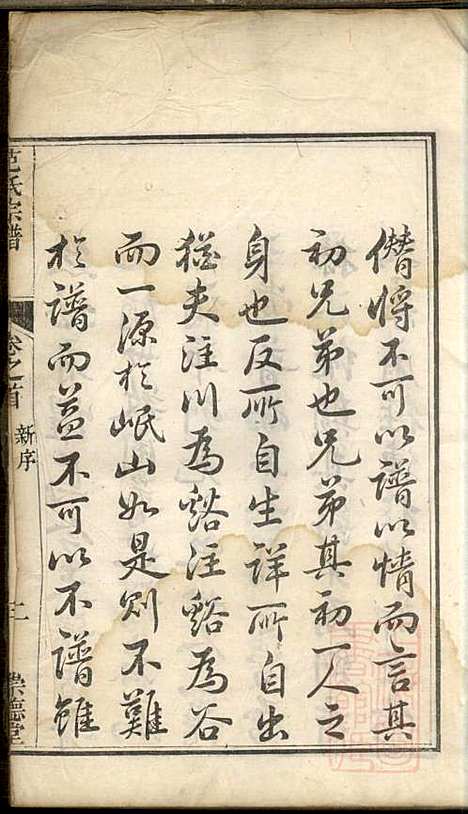 僭將不可以譜以情而言其
初兄弟也兄弟其初一人之
身也反所自生詳所自出
猶夫注川為谿注谿為谷
而一源於岷山如是則不難
於譜而益不可以不譜雖
范氏宗譜
卷之首
新序
二
崇德堂